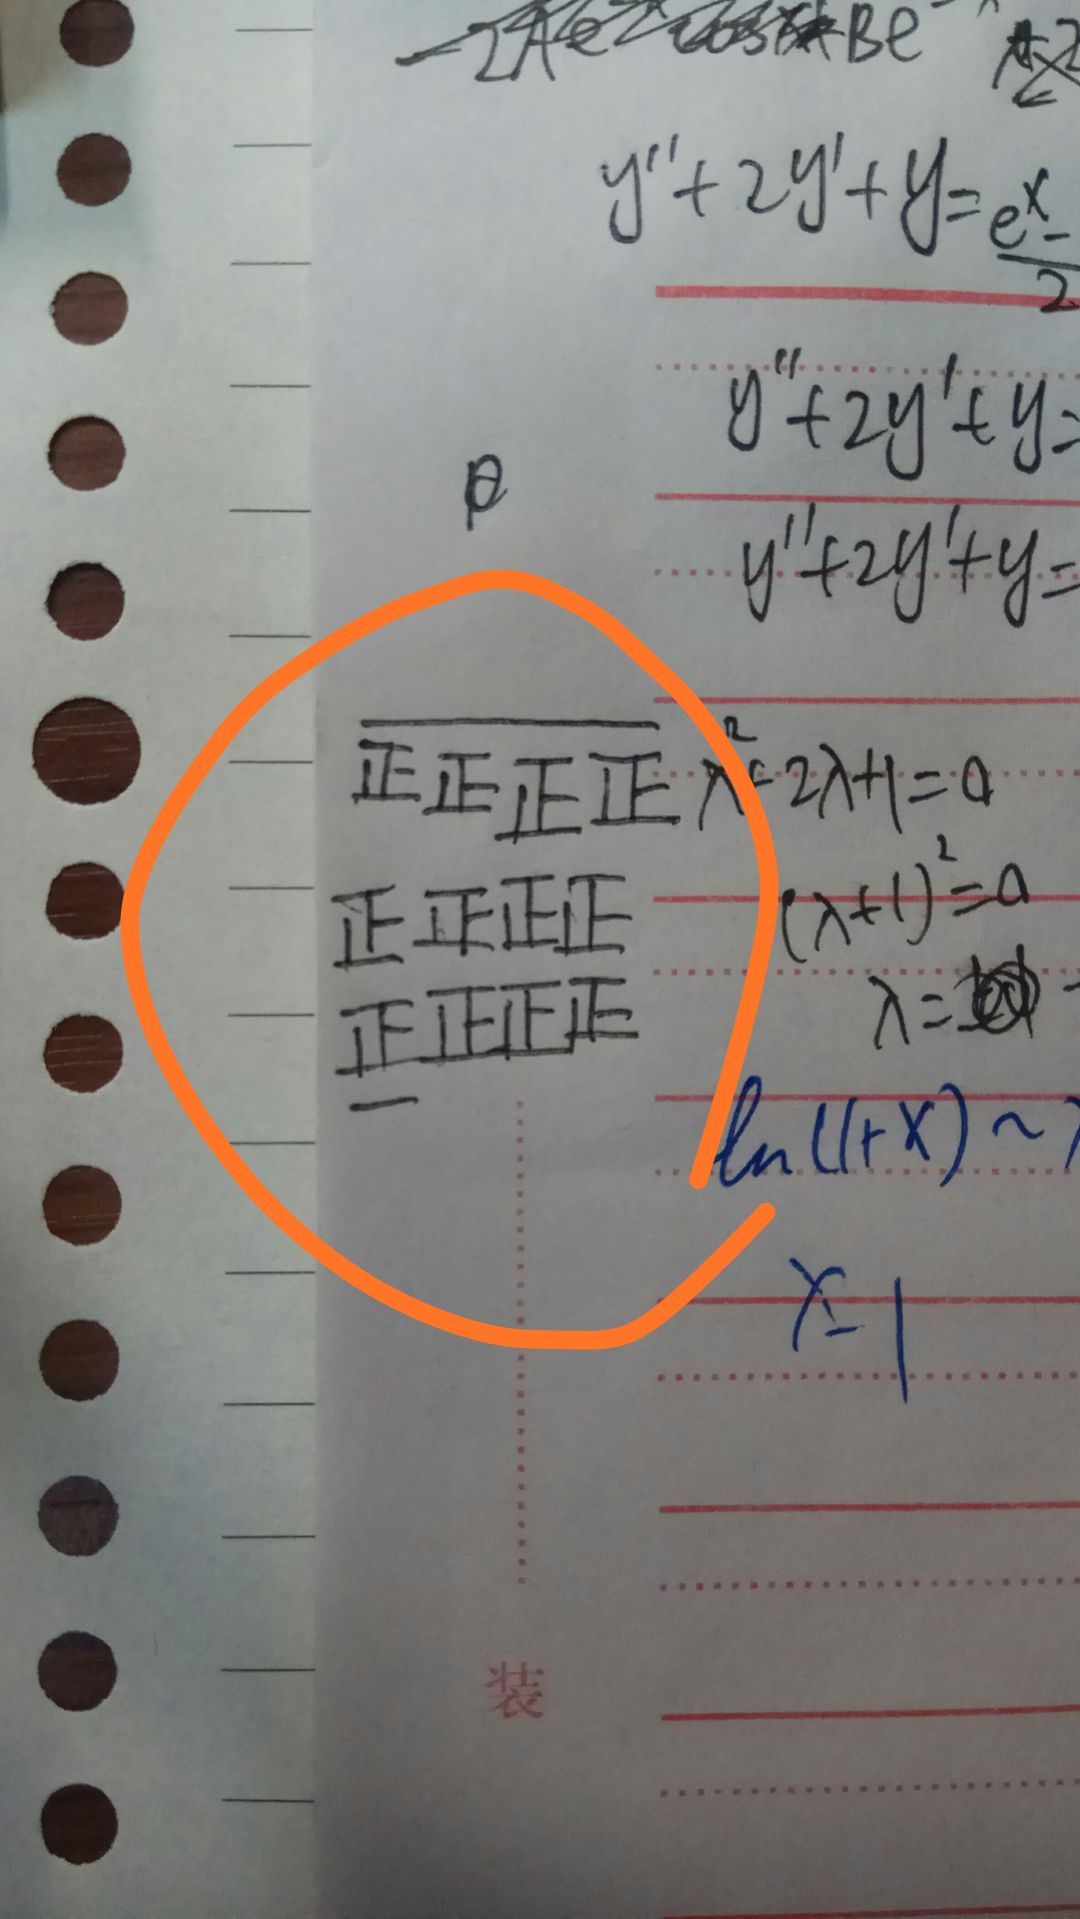 y''+2y'+y=e^x-/2
y''+2y'+y=
y''+2y'+y=
正正正正 λ²-2λ+1=0
正正正正 (λ+1)²=0
正正正正 λ=
一
ln(1+x)~
x-1
装